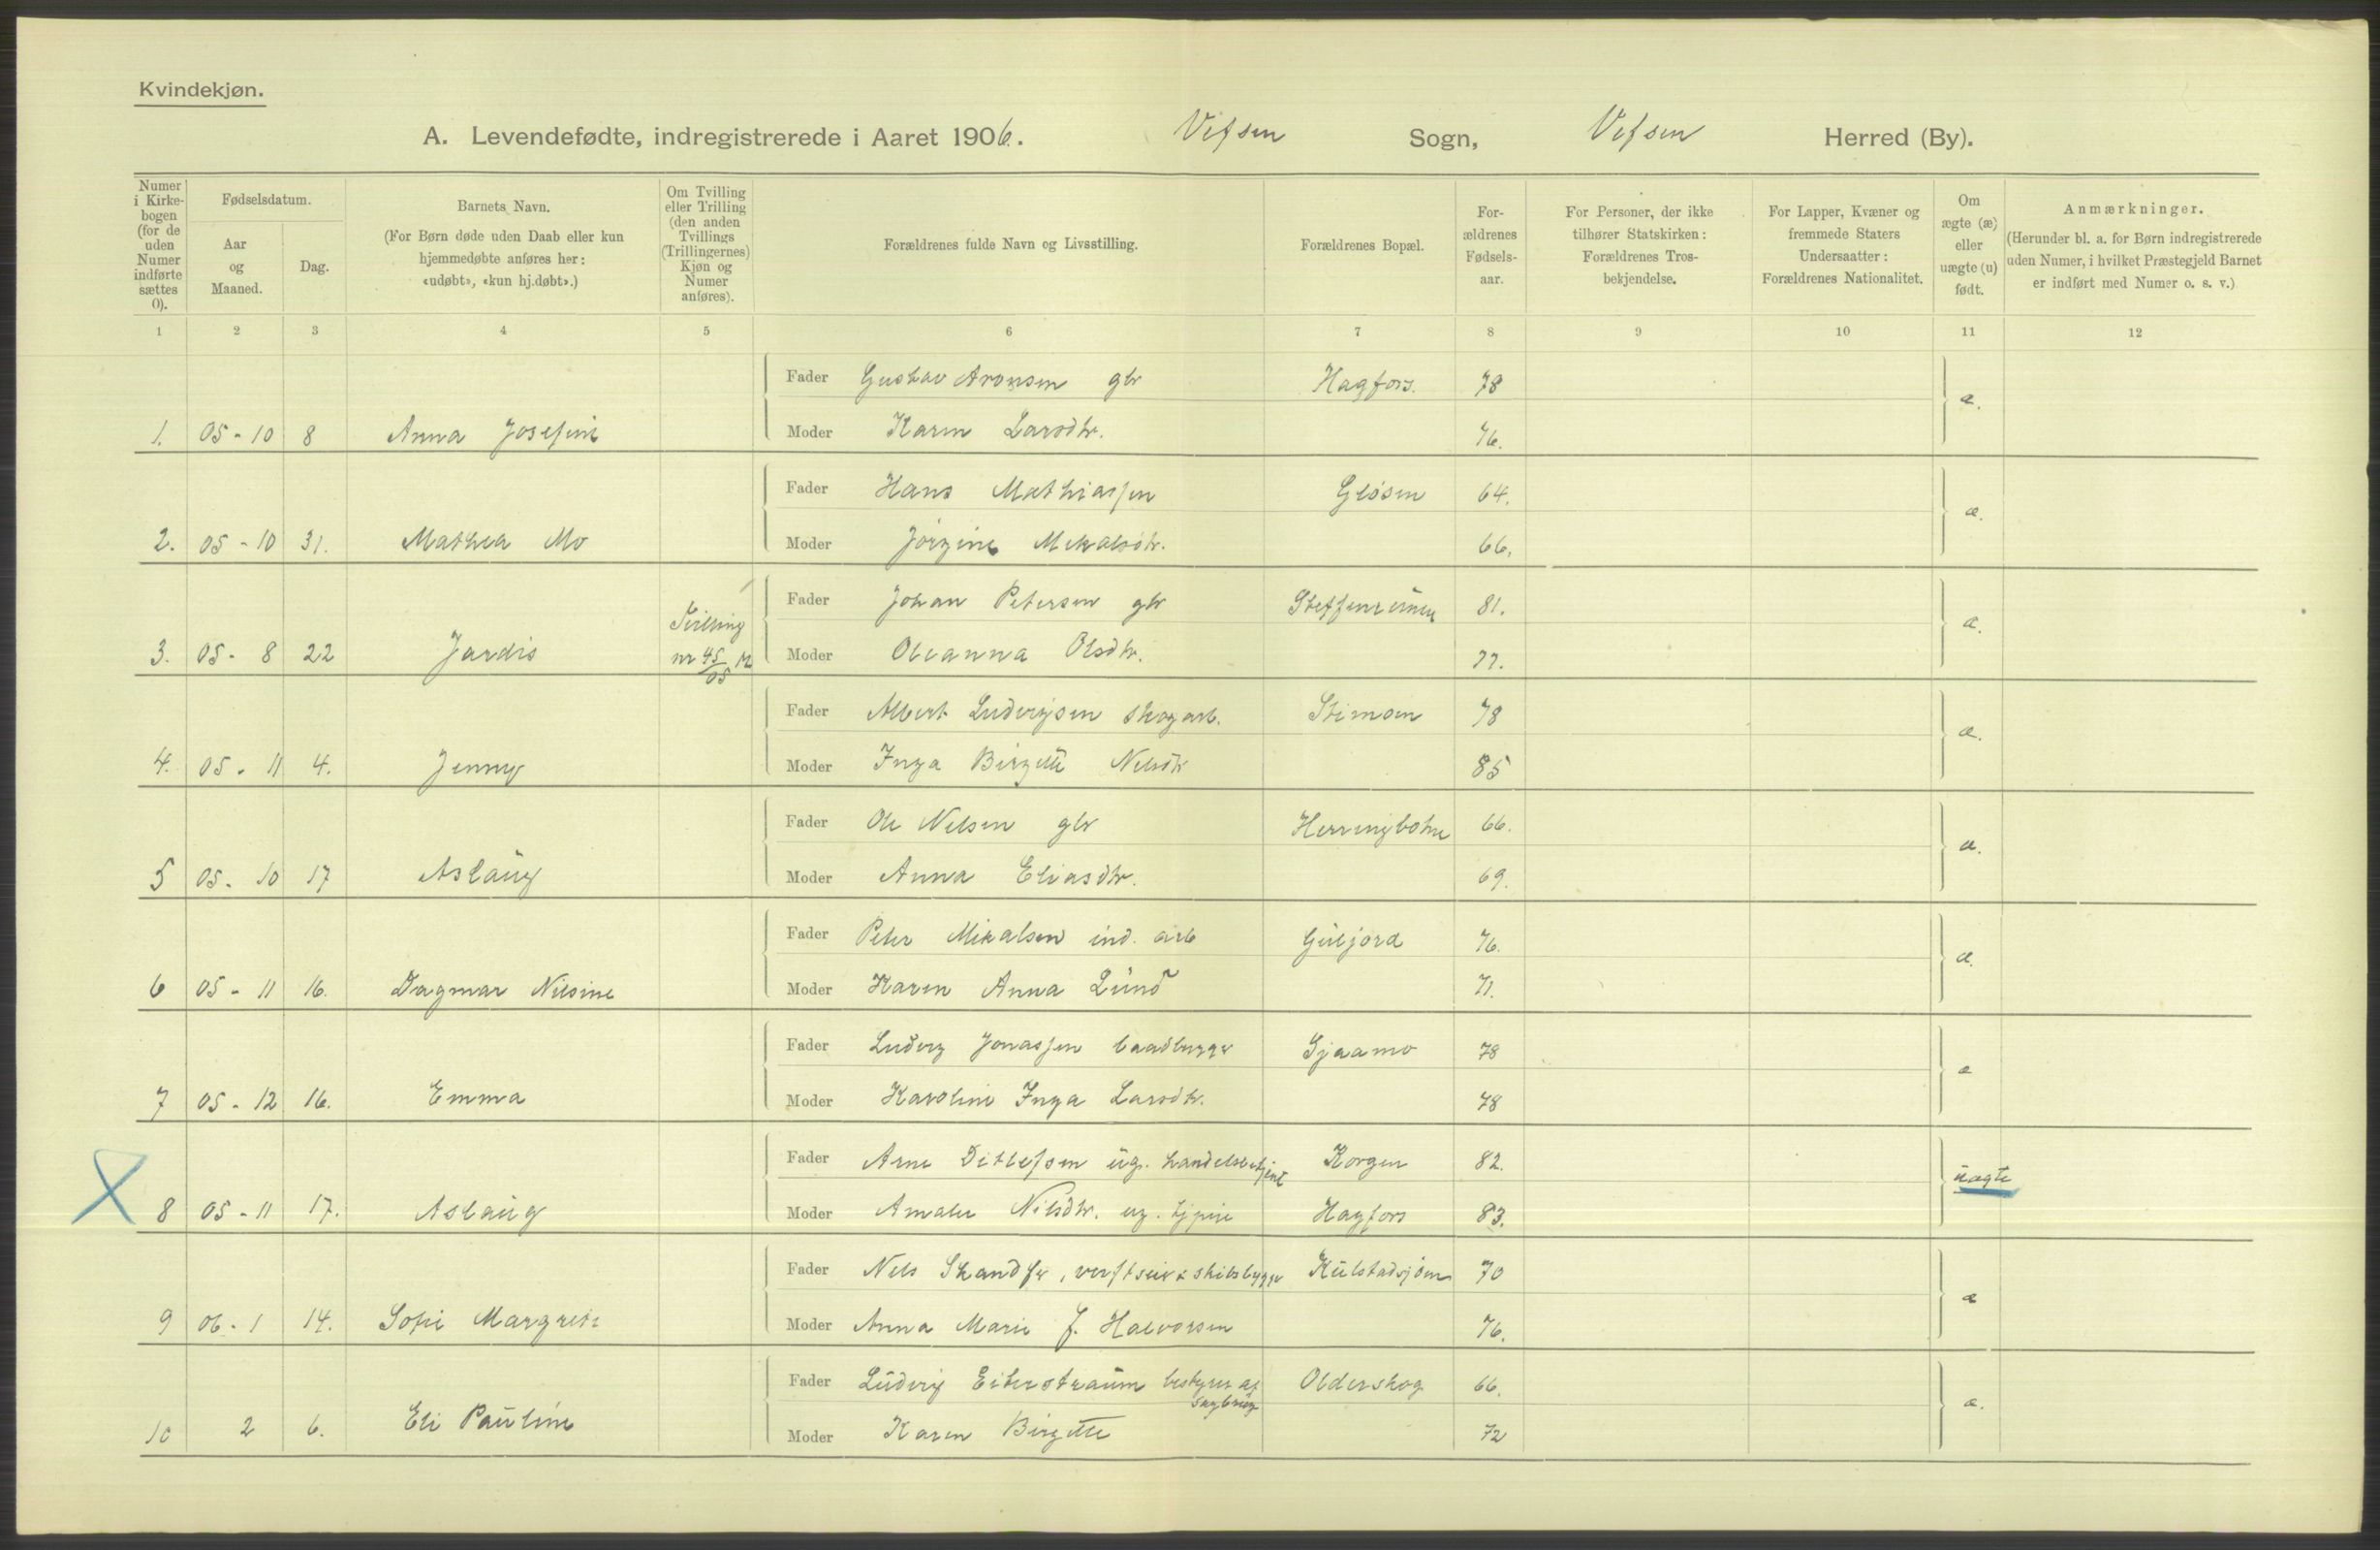 Kvindekjøn.
A. Levendefødte, indregistrerede i Aaret 1906. Vefsen Sogn, Vefsen Herred (By).
Numer i Kirkebogen (for de uden Numer indførte sættes 0).
Fødselsdatum.
Aar og Maaned.
Dag.
Barnets Navn.
(For Børn døde uden Daab eller kun hjemmedøbte anføres her: «udøbt», «kun hj.døbt».)
Om Tvilling eller Trilling (den anden Tvillings (Trillingernes) Kjøn og Numer anføres).
Forældrenes fulde Navn og Livsstilling.
Forældrenes Bopæl.
Forældrenes Fødselsaar.
For Personer, der ikke tilhører Statskirken: Forældrenes Trosbekjendelse.
For Lapper, Kvæner og fremmede Staters Undersaatter: Forældrenes Nationalitet.
Om ægte (æ) eller uægte (u) født.
Anmærkninger.
(Herunder bl. a. for Børn indregistrerede uden Numer, i hvilket Præstegjeld Barnet er indført med Numer o. s. v.)
1 2 3 4 5 6 7 8 9 10 11 12
Fader Gustav Aronsen gbr Hagfors. 78 æ.
1. 05-10 8 Anna Josefine Moder Karen Larsdtr. 76.
Fader Hans Mathiassen Gløsen 64. æ.
2. 05-10 31. Mathea Mo Moder Jørgine Mikalsdtr. 66.
Fader Johan Petersen gbr 81. æ.
3. 05-8 22 Jardis Tvilling nr 45/05 M Moder Oleanna Olsdtr. 77.
Fader Albert Ludvigsen skogarb. Stimoen 78 æ.
4. 05-11 4. Jenny Moder Inga Birgitte Nilsdtr 85
Fader Ole Nilsen gbr Herringbotn 66. æ.
5 05-10 17 Aslaug Moder Anna Eliasdtr. 69.
Fader Peter Mikalsen ind. arb Gulfjord 76. æ.
6 05-11 16. Dagmar Nilsine Moder Karen Anna Lund 71.
Fader Ludvig Jonassen baadbygger Sjaamo 78 æ
7 05-12 16. Emma Moder Karoline Inga Larsdtr. 78
Fader Arne Ditlefsen ug. handelsbetjent Korgen 82. uægte
8 05-11 17. Aslaug Moder Amalie Nilsdtr. ug. tjpige Hagfors 83.
Fader Nils Skandfer, verftseier & skibsbygger Kulstadsjøen 70 æ
9 06-1 14. Sofie Margrete Moder Anna Marie J. Halvorsen 76.
Fader Ludvig Eiterstraum bestyrer af sagbrug Olderskog 66. æ.
10 2 6. Eli Pauline Moder Karen Birgitte 72